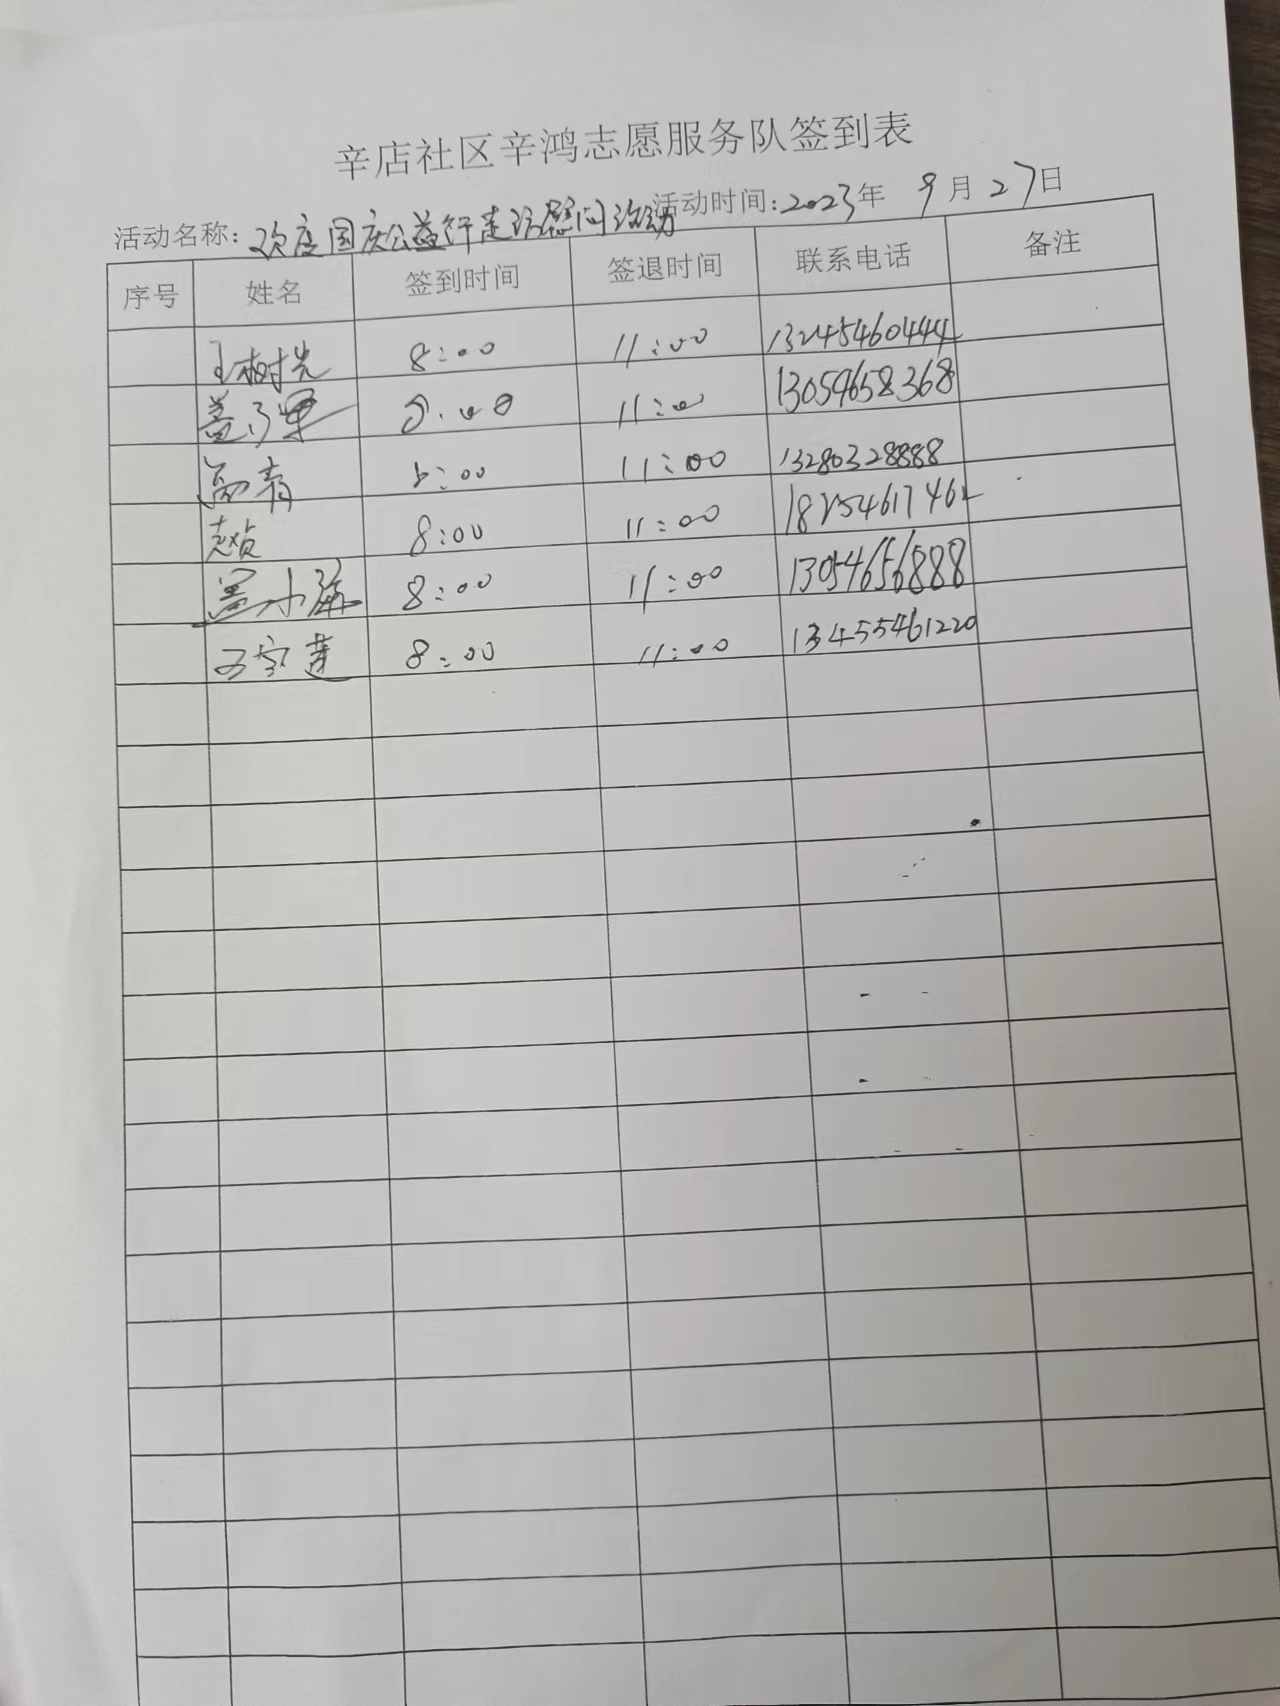 辛店社区辛鸿志愿服务队签到表
活动名称：欢度国庆公益行走访慰问活动 活动时间：2023年 9月27日
序号 姓名 签到时间 签退时间 联系电话 备注
王树光 8:00 11:00 13245460444
盖 军 8:00 11:00 13054658368
高青 8:00 11:00 13280328888
8:00 11:00 18254617462
盖小 8:00 11:00 13054656888
王家莲 8:00 11:00 13455461220